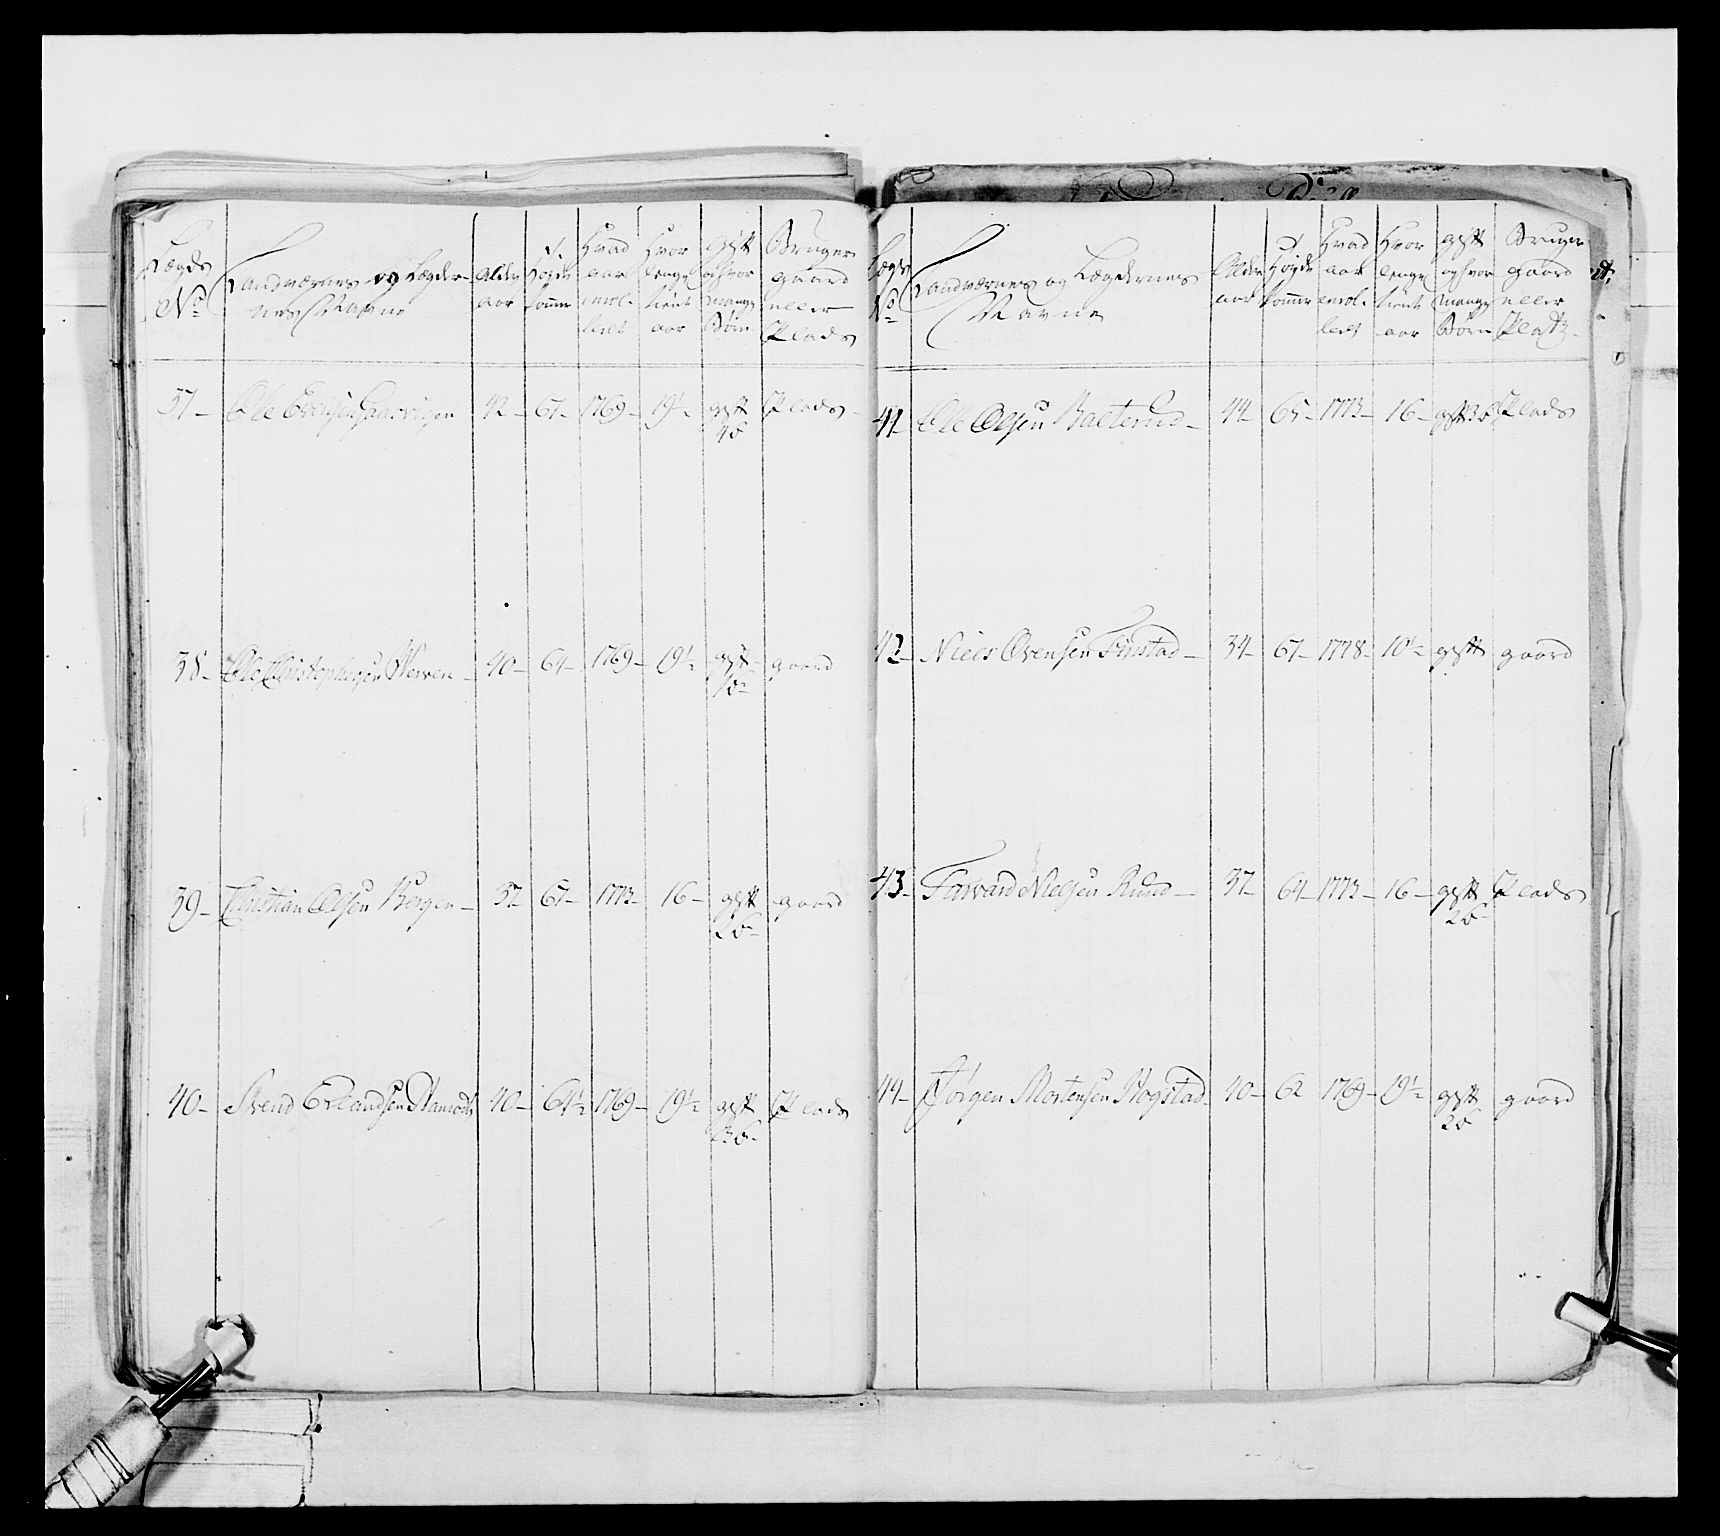 Lægds No
Landværnes og Lægder-nes Navne
Alder aar
Høyde tommer
Hvad aar enrol-lert
Hvor lenge tient aar
gift og hvor mange Børn
Bruger gaard eller Plads
37 - Ole 42 - 67 - 1769 - 19½ gift 4b Plads -
38 - Ole Christophersen 40 - 64 - 1769 - 19½ gift gaard
39 - Christian Olsen Bergen - 37 67 - 1773 - 16 - gift 2b gaard
40 - Svend Erlandsen 40 - 64½ 1769 - 19½ gift 3b Plads
Lægds No
Landværnes og Lægdernes Navne
Alder aar
Høyde tommer
Hvad aar enrol-lert
Hvor lenge tient aar
gift og hvor mange Børn
Bruger gaard eller Platz
41 - Ole Olsen 44 - 65 - 1773 - 16 - gift 3b Plads
42 - Niels Evensen Finstad - 34 - 67 - 1778 - 10½ gift gaard
43 - Nielsen Ruud - 37 - 64 - 1773 - 16 - gift 2b Plads
44 - Jørgen Mortensen Hogstad - 40 - 62 1769 - 19½ gift 2b gaard